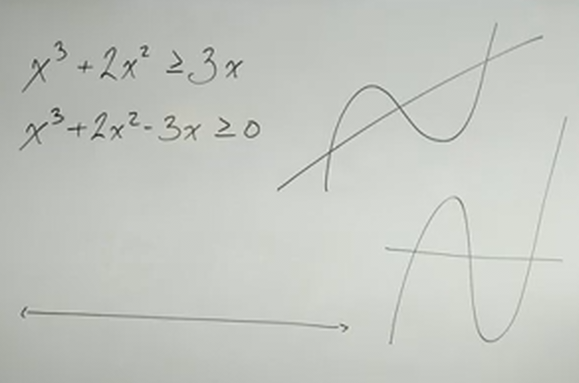 x³ + 2x² ≥ 3x
x³ + 2x² - 3x ≥ 0